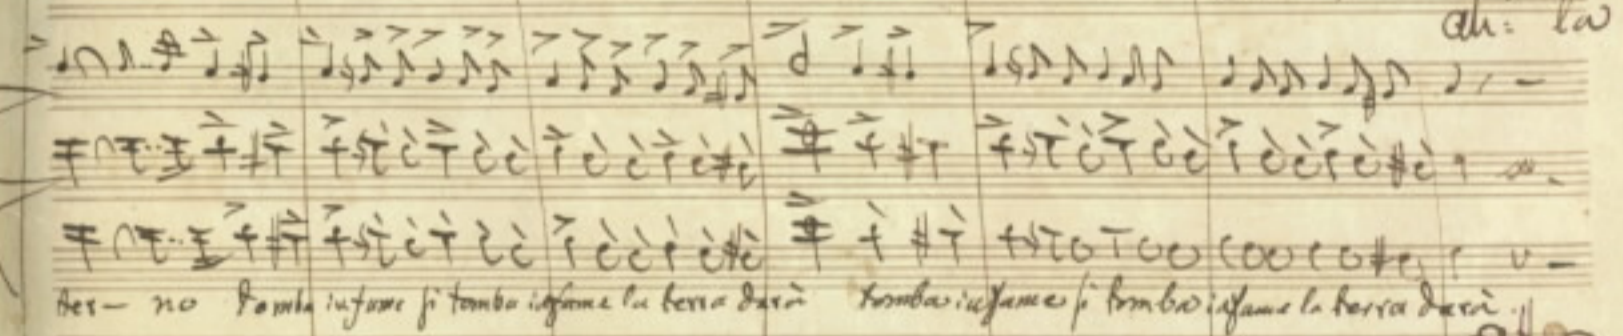 ah: la
ter- no tomba infame si tomba infame la terra darà tomba infame si tomba infame la terra darà.